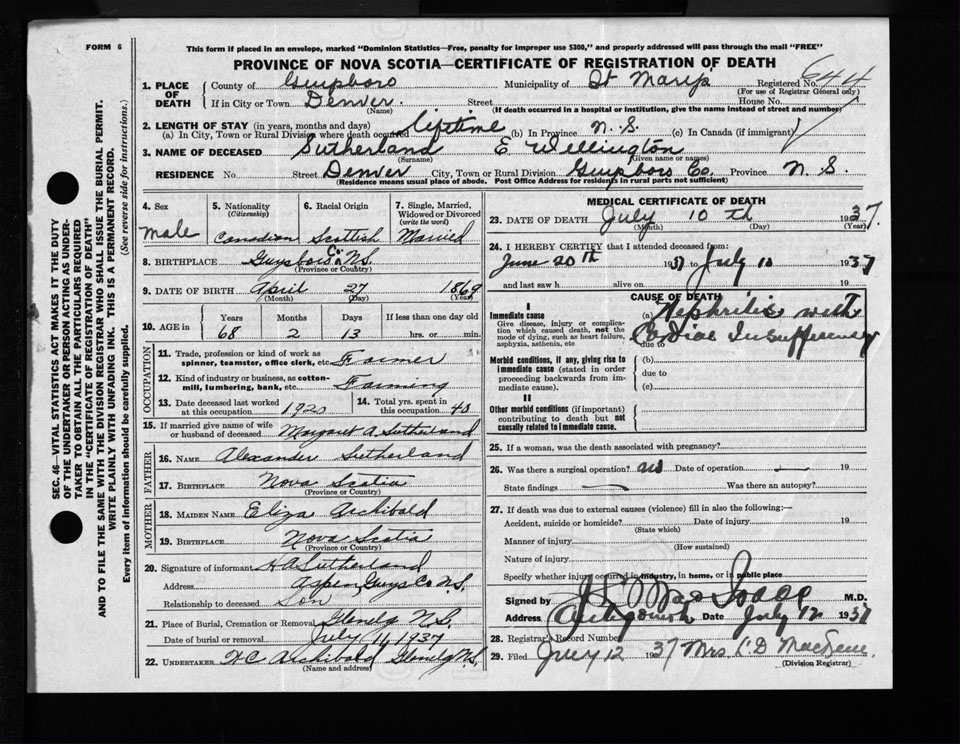 FORM 6
This form if placed in an envelope, marked "Dominion Statistics—Free, penalty for improper use $300," and properly addressed will pass through the mail "FREE"
PROVINCE OF NOVA SCOTIA—CERTIFICATE OF REGISTRATION OF DEATH
SEC. 46—VITAL STATISTICS ACT MAKES IT THE DUTY
OF THE UNDERTAKER OR PERSON ACTING AS UNDER-
TAKER TO OBTAIN ALL THE PARTICULARS REQUIRED
IN THE "CERTIFICATE OF REGISTRATION OF DEATH"
AND TO FILE THE SAME WITH THE DIVISION REGISTRAR WHO SHALL ISSUE THE BURIAL PERMIT.
WRITE PLAINLY WITH UNFADING INK. THIS IS A PERMANENT RECORD.
Every item of information should be carefully supplied. (See reverse side for instructions.)
1. PLACE OF DEATH County of Guysboro Municipality of St Mary's Registered No. 644
(For use of Registrar General only)
If in City or Town Denver. Street House No.
(Name) (If death occurred in a hospital or institution, give the name instead of street and number)
2. LENGTH OF STAY (in years, months and days)
(a) In City, Town or Rural Division where death occurred Lifetime (b) In Province N. S. (c) In Canada (if immigrant)
3. NAME OF DECEASED Sutherland E. Wellington
(Surname) (Given name or names)
RESIDENCE No. Street Denver City, Town or Rural Division Guysboro Co. Province N. S.
(Residence means usual place of abode. Post Office Address for residents in rural parts not sufficient)
4. Sex 5. Nationality (Citizenship) 6. Racial Origin 7. Single, Married, Widowed or Divorced (write the word)
Male Canadian Scottish Married
8. BIRTHPLACE Guysboro Co. N.S.
(Province or Country)
9. DATE OF BIRTH April 27 1869
(Month) (Day) (Year)
10. AGE in Years Months Days If less than one day old
68 2 13 hrs. or min.
OCCUPATION
11. Trade, profession or kind of work as spinner, teamster, office clerk, etc. Farmer
12. Kind of industry or business, as cotton-mill, lumbering, bank, etc. Farming
13. Date deceased last worked at this occupation 1920 14. Total yrs. spent in this occupation 40
15. If married give name of wife or husband of deceased Margaret A. Sutherland
FATHER
16. NAME Alexander Sutherland
17. BIRTHPLACE Nova Scotia
(Province or Country)
MOTHER
18. MAIDEN NAME Eliza Archibald
19. BIRTHPLACE Nova Scotia
(Province or Country)
20. Signature of informant H A Sutherland
Address Aspen Guys Co N.S.
Relationship to deceased Son
21. Place of Burial, Cremation or Removal Glenelg N.S.
Date of burial or removal July 11, 1937
22. UNDERTAKER H C Archibald Glenelg N.S.
MEDICAL CERTIFICATE OF DEATH
23. DATE OF DEATH July 10th 1937.
(Month) (Day) (Year)
24. I HEREBY CERTIFY that I attended deceased from:
June 20th 1937 to July 10 1937
and last saw h alive on 19
CAUSE OF DEATH
I
Immediate cause (a) Nephritis with
Give disease, injury or complication which caused death, not the mode of dying, such as heart failure, asphyxia, asthenia, etc
Cardiac Insufficiency
due to
Morbid conditions, if any, giving rise to immediate cause (stated in order proceeding backwards from immediate cause).
(b)
due to
(c)
II
Other morbid conditions (if important) contributing to death but not causally related to immediate cause.
25. If a woman, was the death associated with pregnancy?
26. Was there a surgical operation? no Date of operation 19
State findings Was there an autopsy?
27. If death was due to external causes (violence) fill in also the following:—
Accident, suicide or homicide? Date of injury 19
(State which)
Manner of injury
(How sustained)
Nature of injury
Specify whether injury occurred in industry, in home, or in public place
Signed by MacIsaac M.D.
Address Antigonish Date July 12 1937
28. Registrar's Record Number
29. Filed July 12 1937 Mrs C D
(Division Registrar)